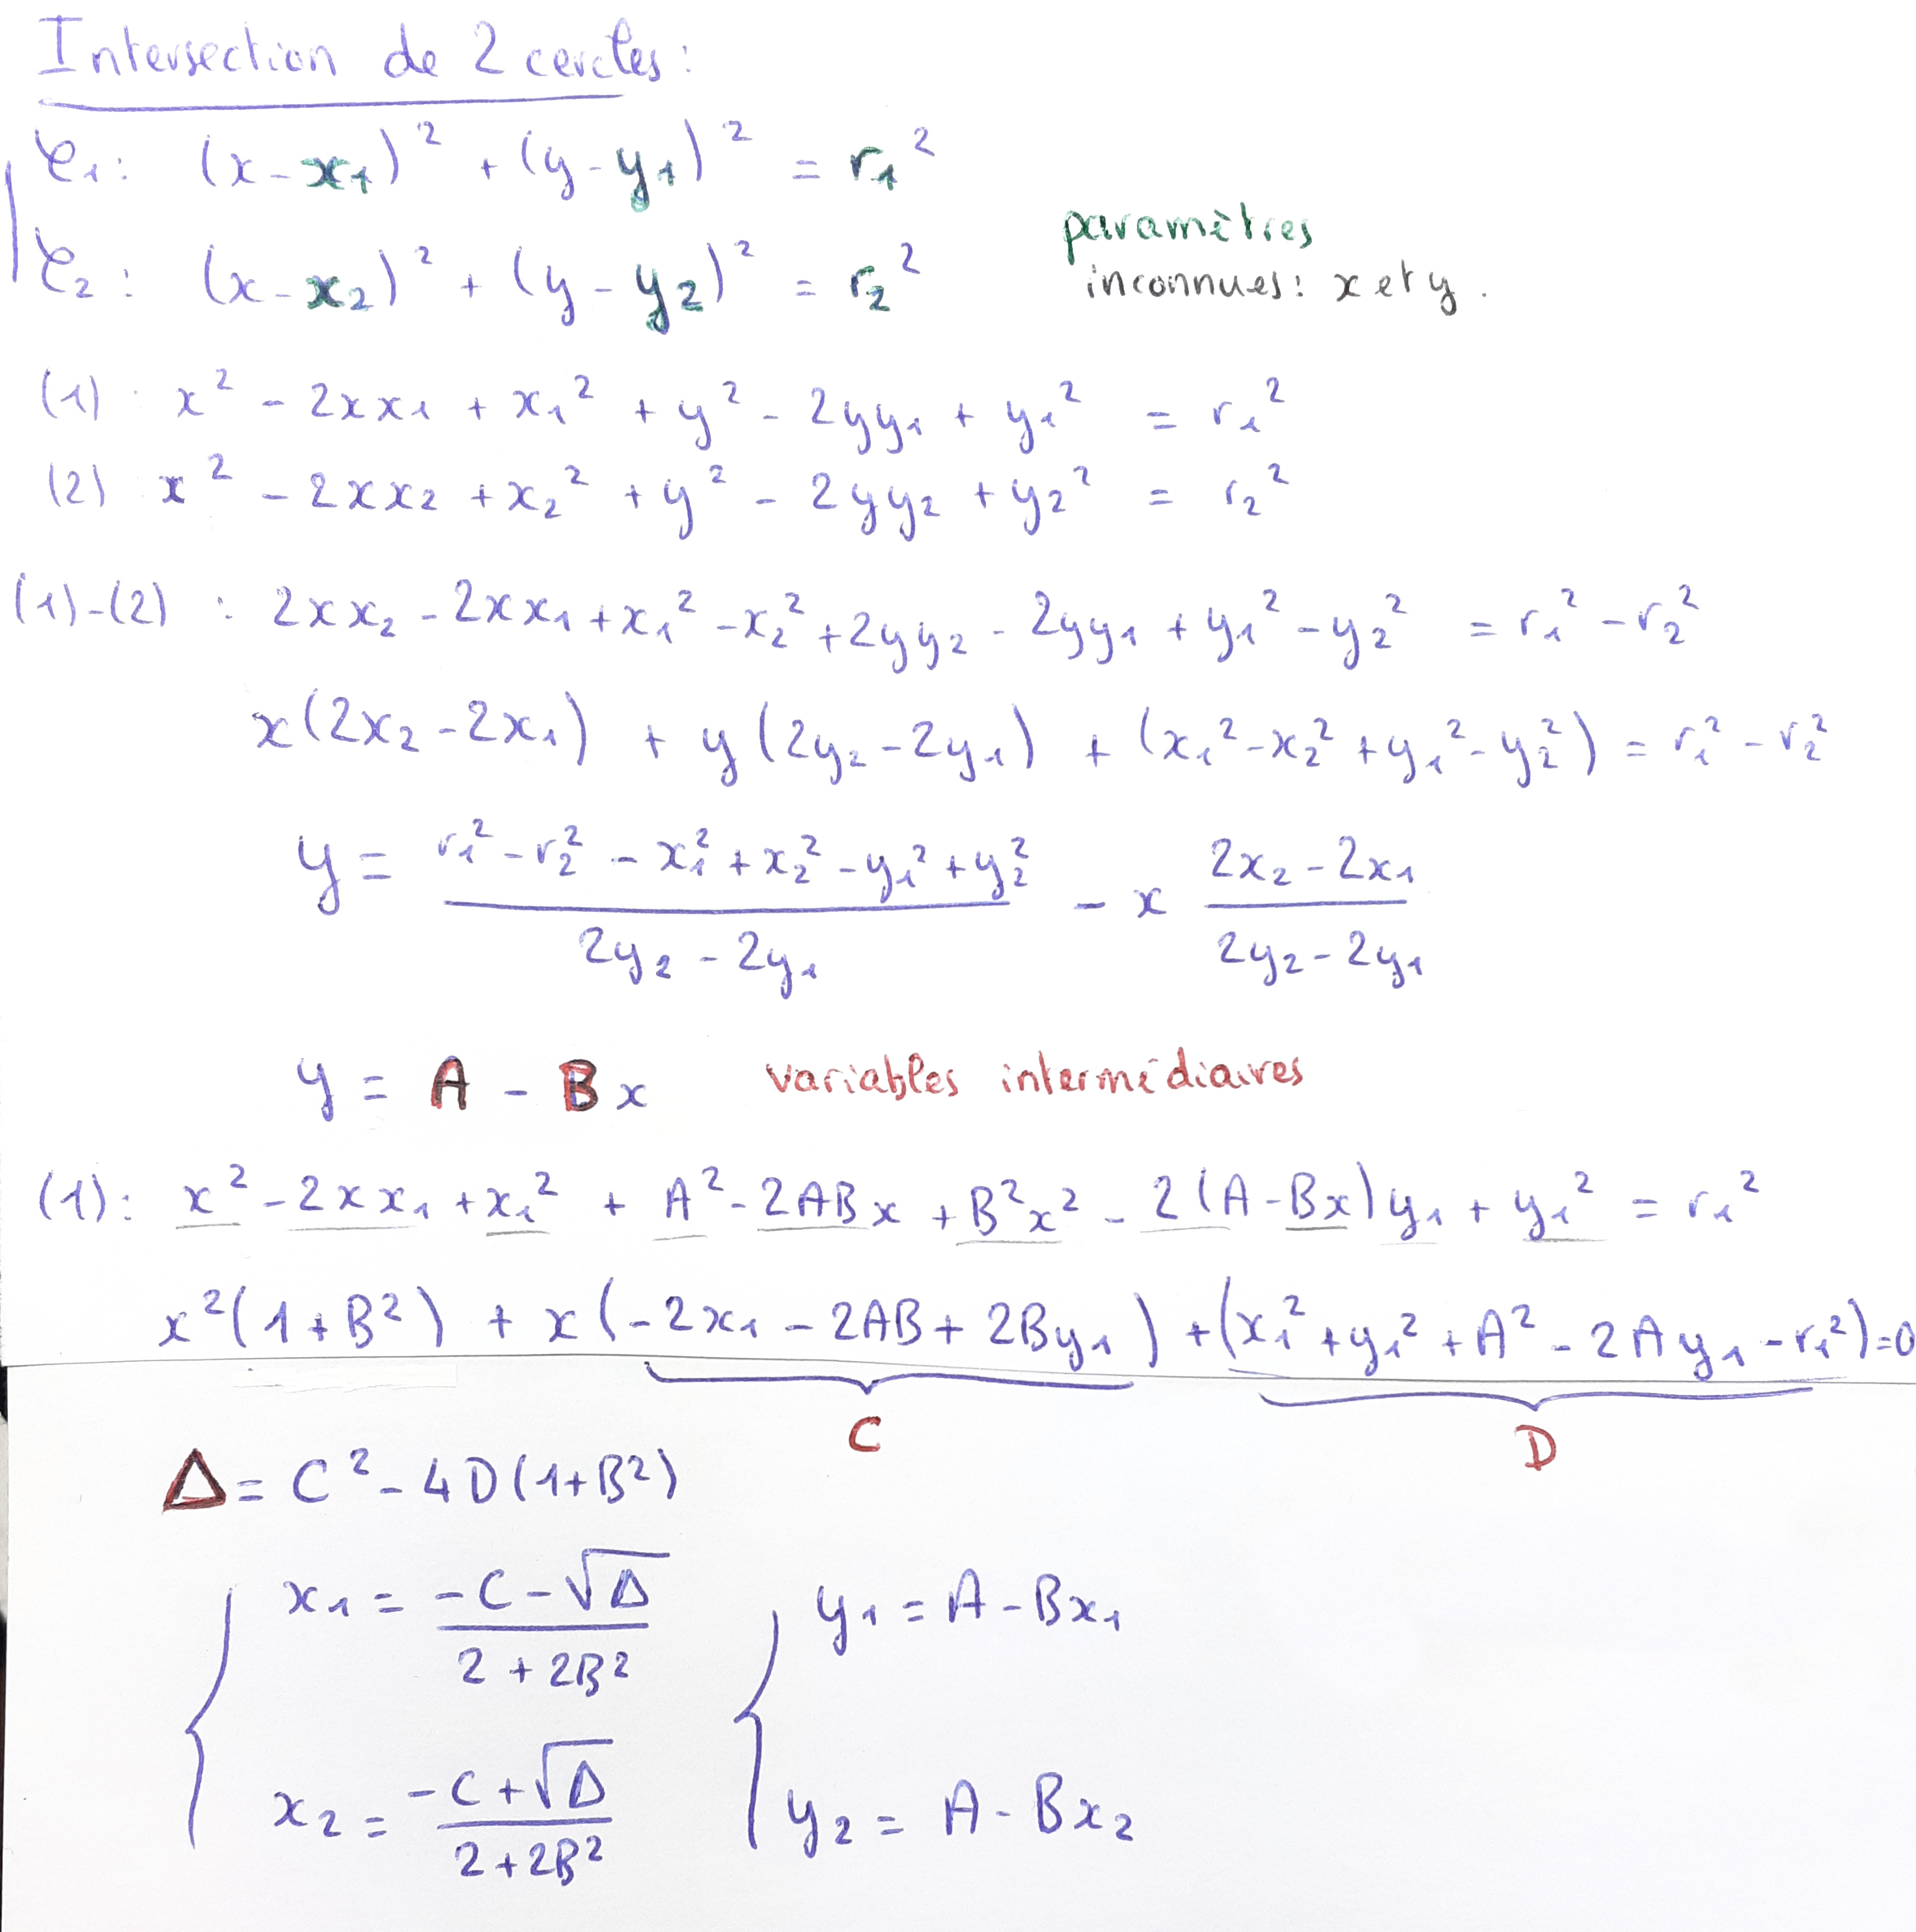 Intersection de 2 cercles :
C₁ : (x - x₁)² + (y - y₁)² = r₁²
paramètres
C₂ : (x - x₂)² + (y - y₂)² = r₂²
inconnues : x et y .
(1) : x² - 2xx₁ + x₁² + y² - 2yy₁ + y₁² = r₁²
(2) x² - 2xx₂ + x₂² + y² - 2yy₂ + y₂² = r₂²
(1)-(2) : 2xx₂ - 2xx₁ + x₁² - x₂² + 2yy₂ - 2yy₁ + y₁² - y₂² = r₁² - r₂²
x(2x₂ - 2x₁) + y(2y₂ - 2y₁) + (x₁² - x₂² + y₁² - y₂²) = r₁² - r₂²
y = (r₁² - r₂² - x₁² + x₂² - y₁² + y₂²)/(2y₂ - 2y₁) - x (2x₂ - 2x₁)/(2y₂ - 2y₁)
y = A - Bx variables intermédiaires
(1) : x² - 2xx₁ + x₁² + A² - 2ABx + B²x² - 2(A - Bx)y₁ + y₁² = r₁²
x²(1 + B²) + x(-2x₁ - 2AB + 2By₁) + (x₁² + y₁² + A² - 2Ay₁ - r₁²) = 0
C D
Δ = C² - 4D(1+B²)
x₁ = (-C - √Δ)/(2 + 2B²) y₁ = A - Bx₁
x₂ = (-C + √Δ)/(2 + 2B²) y₂ = A - Bx₂